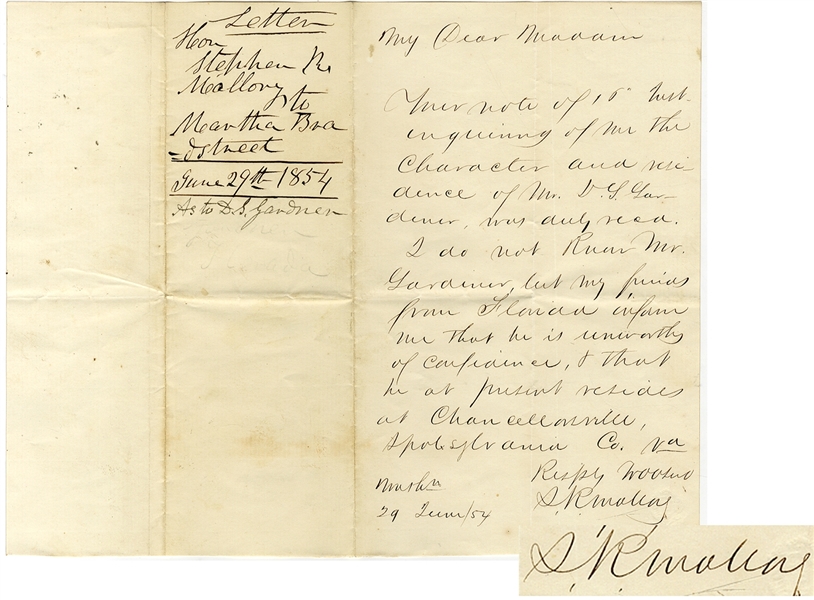 Letter
Hon
Stephen R.
Mallory
to
Martha Bra
=dstreet
June 29th 1854
As to D.S. Gardner
My Dear Madam
Your note of 15" Inst.
enquiring of me the
Character and resi
dence of Mr. D. S. Gar-
dener, was duly recd.
I do not Know Mr.
Gardener, but my friends
from Florida inform
me that he is unworthy
of confidence, & that
he at present resides
at Chancellorsville,
Spotsylvania Co. Va
Respy
S. R. Mallory
Washn
29 June/54
S. R. Mallory